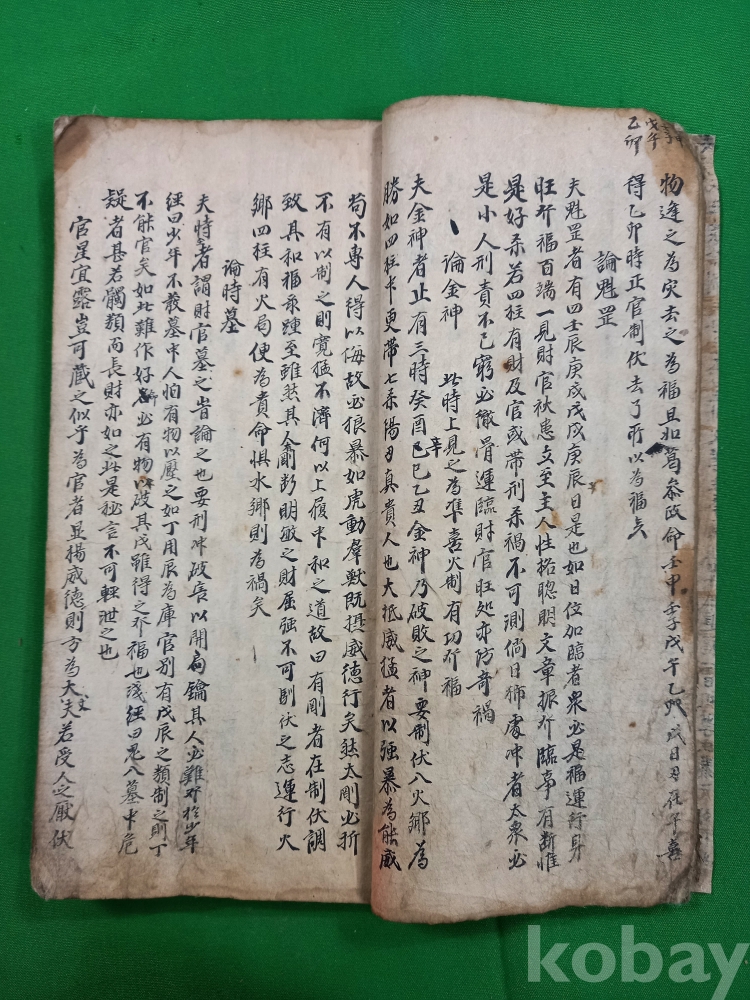 物逢之為灾去之為福且如葛参政命壬申壬子戊午乙卯戊日刃在午喜
得乙卯時正官制伏去了所以為福矣
論魁罡
夫魁罡者有四壬辰庚戌戊戌庚辰日是也如日位加臨者衆必是福運行身
旺發福百端一見財官禍患立至主人性格聰明文章振發臨事有断惟
是好杀若四柱有財及官或带刑杀禍不可測倘日獨處冲者太衆必
是小人刑責不已窮必徹骨運臨財官旺处亦防奇禍
論金神 此時上見之為準喜火制有功發福
夫金神者止有三時癸酉己巳乙丑金神乃破敗之神要制伏入火鄉為
勝如四柱中更帶七杀陽刃真貴人也大抵威猛者以强暴為能威
苟不專人得以侮故必狼暴如虎動羣獸既攝威德行矣然太剛必折
不有以制之則寬猛不濟何以上履中和之道故曰有剛者在制伏調
致其和福來踵至雖然其人剛断明敏之財屈强不可馴伏之志運行火
鄉四柱有火局便為貴命惧水鄉則為禍矣
論時墓
夫時者謂財官墓之旹論之也要刑冲破害以開扃鑰其人必難發於少年
經曰少年不發墓中人怕有物以壓之如丁用辰為庫官别有戊辰之類制之則丁
不能官矣如此難作好命必有物以破其戊雖得之發福也淺經曰鬼入墓中危
疑者甚若髑類而長財亦如之此是秘言不可輕泄之也
官星宜露豈可藏之似乎為官者显揚威德則方為大丈夫若受人之厭伏
戊午
乙卯
辛